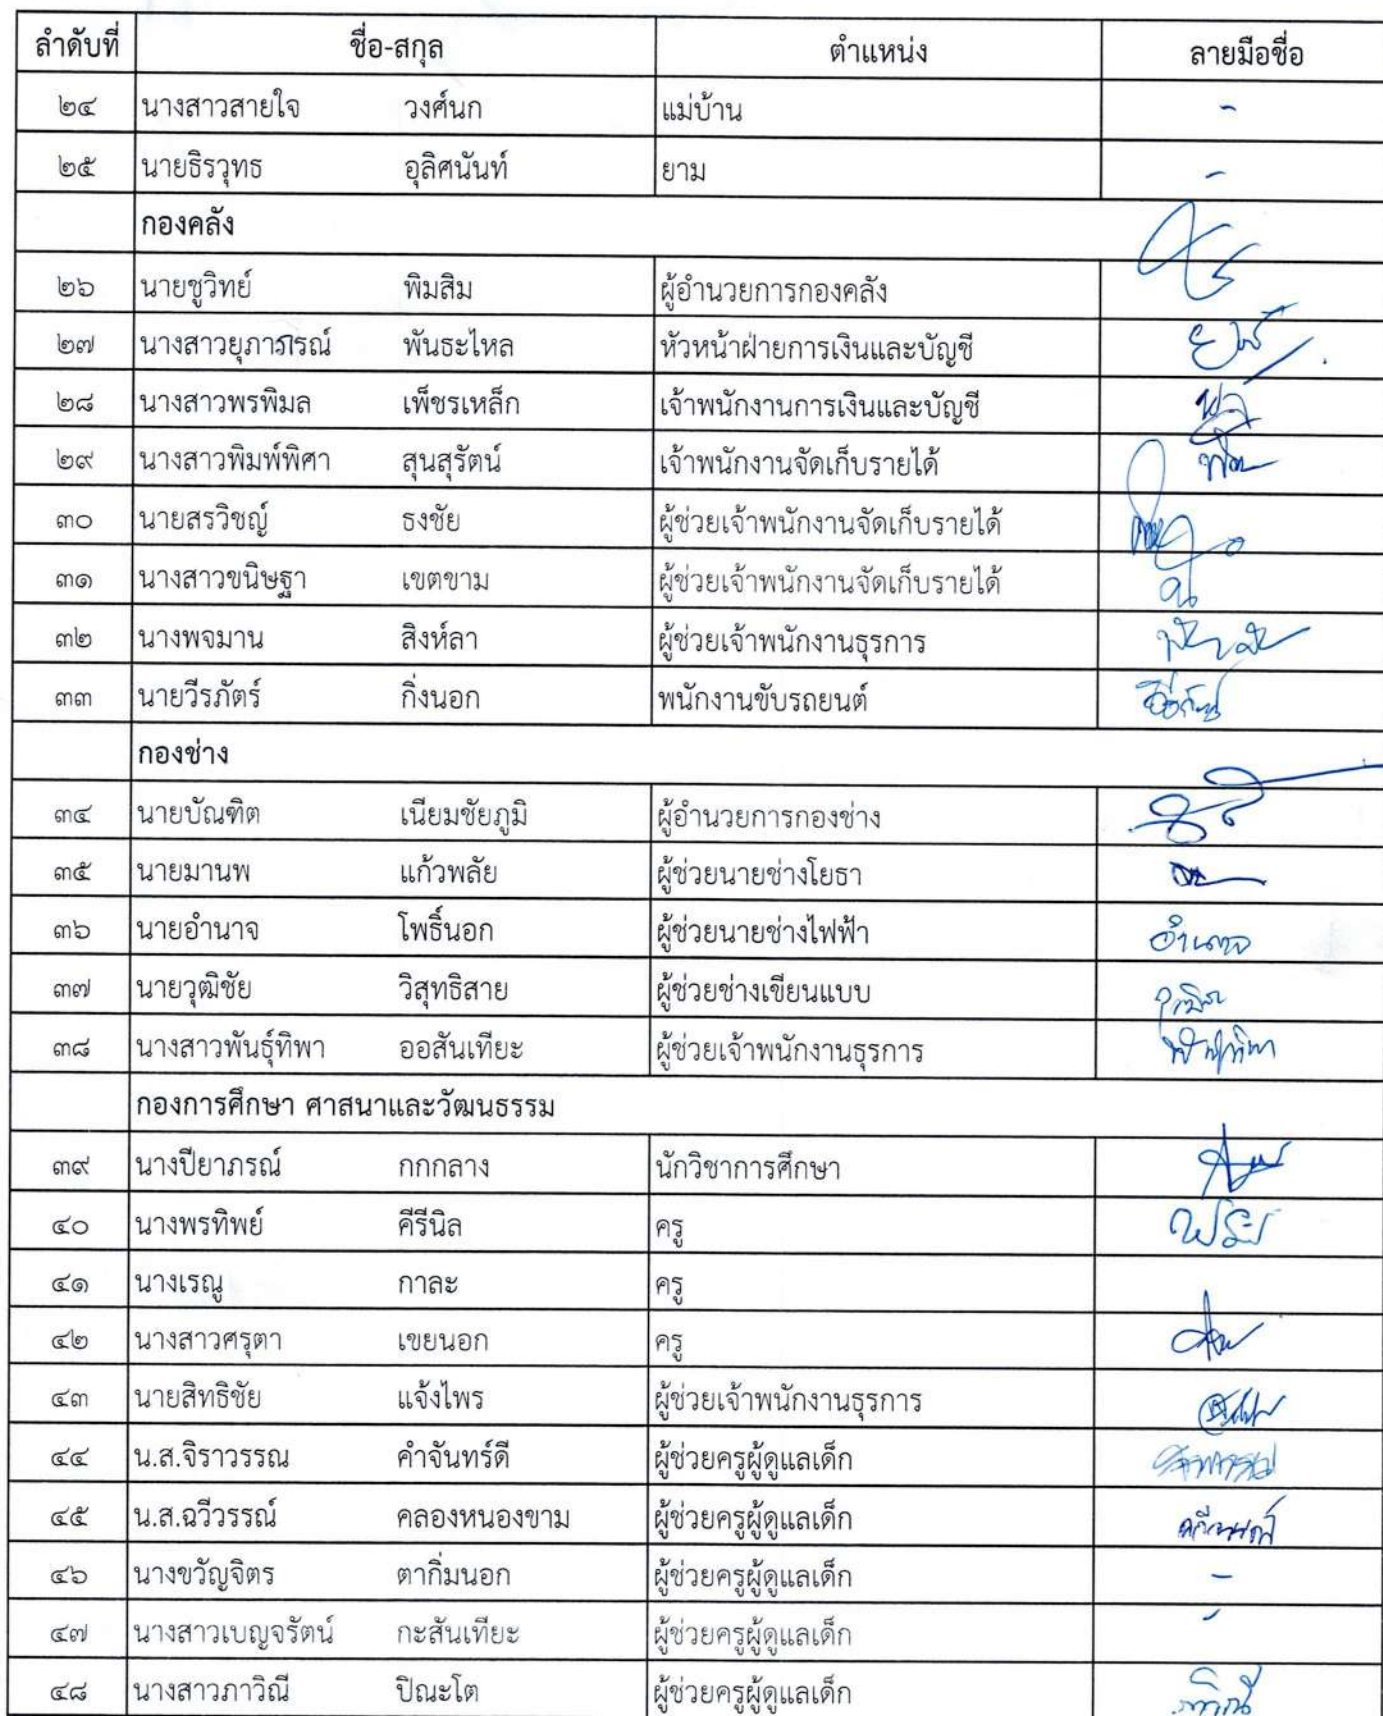 ลำดับที่ ชื่อ-สกุล ตำแหน่ง ลายมือชื่อ
๒๔ นางสาวสายใจ วงศ์นก แม่บ้าน -
๒๕ นายธิรวุทธ อุลิศนันท์ ยาม -
กองคลัง
๒๖ นายชูวิทย์ พิมสิม ผู้อำนวยการกองคลัง
๒๗ นางสาวยุภาภรณ์ พันธะไหล หัวหน้าฝ่ายการเงินและบัญชี
๒๘ นางสาวพรพิมล เพ็ชรเหล็ก เจ้าพนักงานการเงินและบัญชี
๒๙ นางสาวพิมพ์พิศา สุนสุรัตน์ เจ้าพนักงานจัดเก็บรายได้
๓๐ นายสรวิชญ์ ธงชัย ผู้ช่วยเจ้าพนักงานจัดเก็บรายได้
๓๑ นางสาวขนิษฐา เขตขาม ผู้ช่วยเจ้าพนักงานจัดเก็บรายได้
๓๒ นางพจมาน สิงห์ลา ผู้ช่วยเจ้าพนักงานธุรการ
๓๓ นายวีรภัตร์ กิ่งนอก พนักงานขับรถยนต์
กองช่าง
๓๔ นายบัณฑิต เนียมชัยภูมิ ผู้อำนวยการกองช่าง
๓๕ นายมานพ แก้วพลัย ผู้ช่วยนายช่างโยธา
๓๖ นายอำนาจ โพธิ์นอก ผู้ช่วยนายช่างไฟฟ้า อำนาจ
๓๗ นายวุฒิชัย วิสุทธิสาย ผู้ช่วยช่างเขียนแบบ
๓๘ นางสาวพันธุ์ทิพา ออสันเทียะ ผู้ช่วยเจ้าพนักงานธุรการ
กองการศึกษา ศาสนาและวัฒนธรรม
๓๙ นางปิยาภรณ์ กกกลาง นักวิชาการศึกษา
๔๐ นางพรทิพย์ คีรีนิล ครู
๔๑ นางเรณู กาละ ครู
๔๒ นางสาวศรุตา เขยนอก ครู
๔๓ นายสิทธิชัย แจ้งไพร ผู้ช่วยเจ้าพนักงานธุรการ
๔๔ น.ส.จิราวรรณ คำจันทร์ดี ผู้ช่วยครูผู้ดูแลเด็ก
๔๕ น.ส.ฉวีวรรณ์ คลองหนองขาม ผู้ช่วยครูผู้ดูแลเด็ก
๔๖ นางขวัญจิตร ตากิ่มนอก ผู้ช่วยครูผู้ดูแลเด็ก -
๔๗ นางสาวเบญจรัตน์ กะสันเทียะ ผู้ช่วยครูผู้ดูแลเด็ก -
๔๘ นางสาวภาวิณี ปิณะโต ผู้ช่วยครูผู้ดูแลเด็ก ภาวิณี